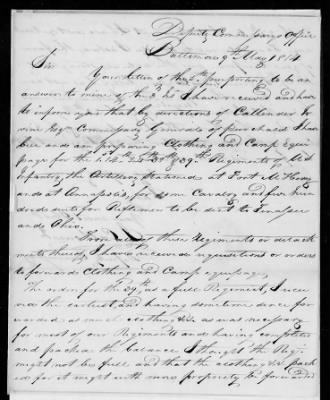 Deputy Commissary's Office
Baltimore 9th May 1814
Sir
Your letter of the 5th purporting to be an
answer to mine of the 3d I have received and have
to inform you that by directions of Callender Ir
vine Esqr Commissary General of purchases I have
been and am preparing Clothing and Camp Equi
page for the 14th 38th 39th Regiments of U.S.
Infantry, the Artillery stationed at Fort McHenry
and at Annapolis, for some Cavalry and five hun
dred suits for Riflemen to be sent to Tenessee
and Ohio.
From these Regiments or detach
ments thereof, I have received requisitions or orders
to forward Clothing and Camp equipage,
The order for the 39th as a full Regiment, I rece
ived the earliest and having some time since for
warded as much clothing &c as was necessary
for most of our Regiments and having completed
and packed the balance I thought the Regt
might not be full and that the clothing &c pack
ed for it might with more propriety be forwarded